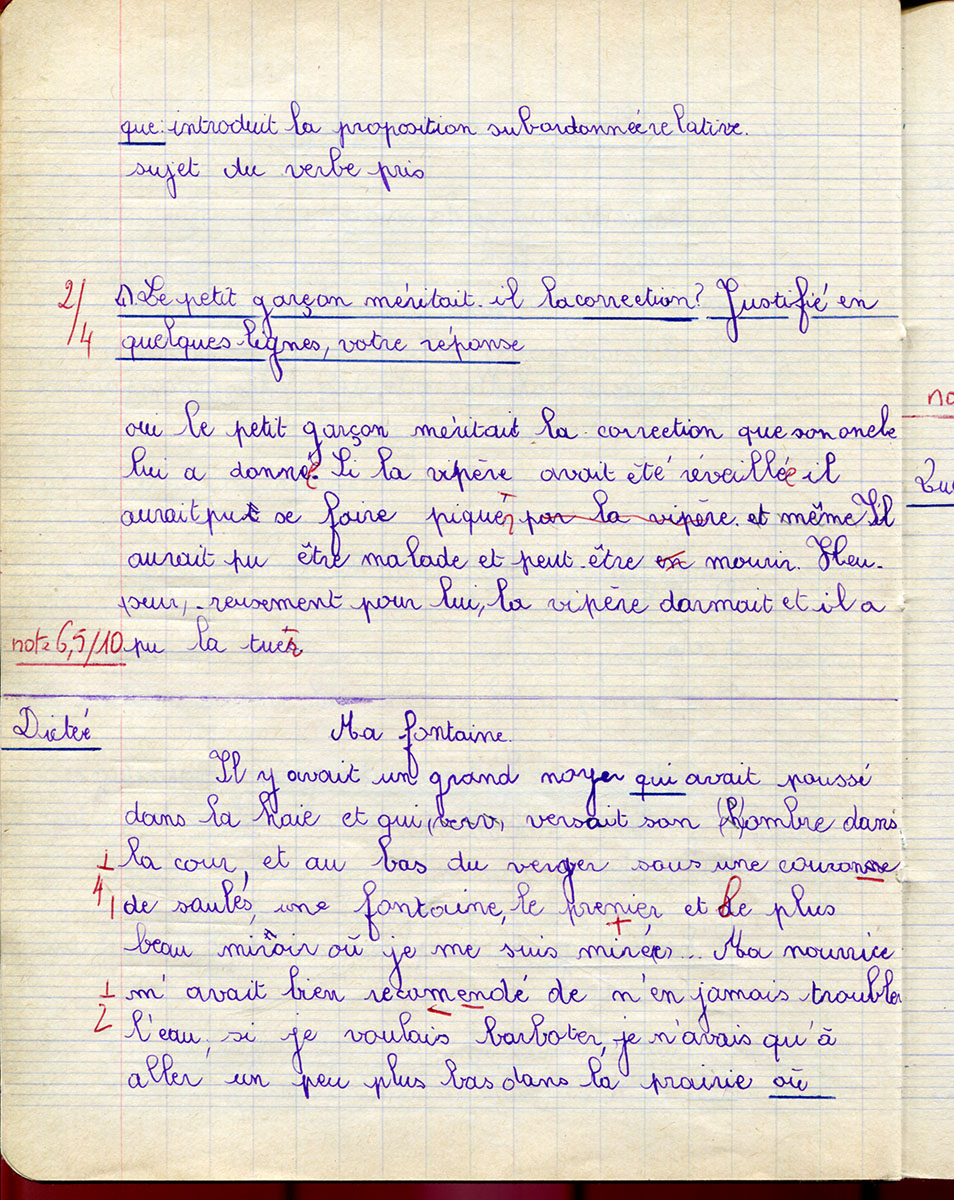 que: introduit la proposition subordonnée relative.
sujet du verbe pris
2/4 4) Le petit garçon méritait-il la correction? Justifié en
quelques lignes, votre réponse
oui le petit garçon méritait la correction que son oncle
lui a donnée. Si la vipère avait été réveillée il
aurait put se faire piquer par la vipère. et même Il
aurait pu être malade et peut-être en mourir. Heu-
peur, -reusement pour lui, la vipère dormait et il a
note 6,5/10 pu la tuer
Dictée Ma fontaine.
Il y avait un grand noyer qui avait poussé
dans la haie et qui (verv) versait son (h)ombre dans
la cour, et au bas du verger sous une couronne
de saules, une fontaine, le premier et le plus
beau miroir où je me suis miré(e)... Ma nourrice
m'avait bien recomendé de n'en jamais troubler
l'eau, si je voulais barboter, je n'avais qu'à
aller un peu plus bas dans la prairie où
no